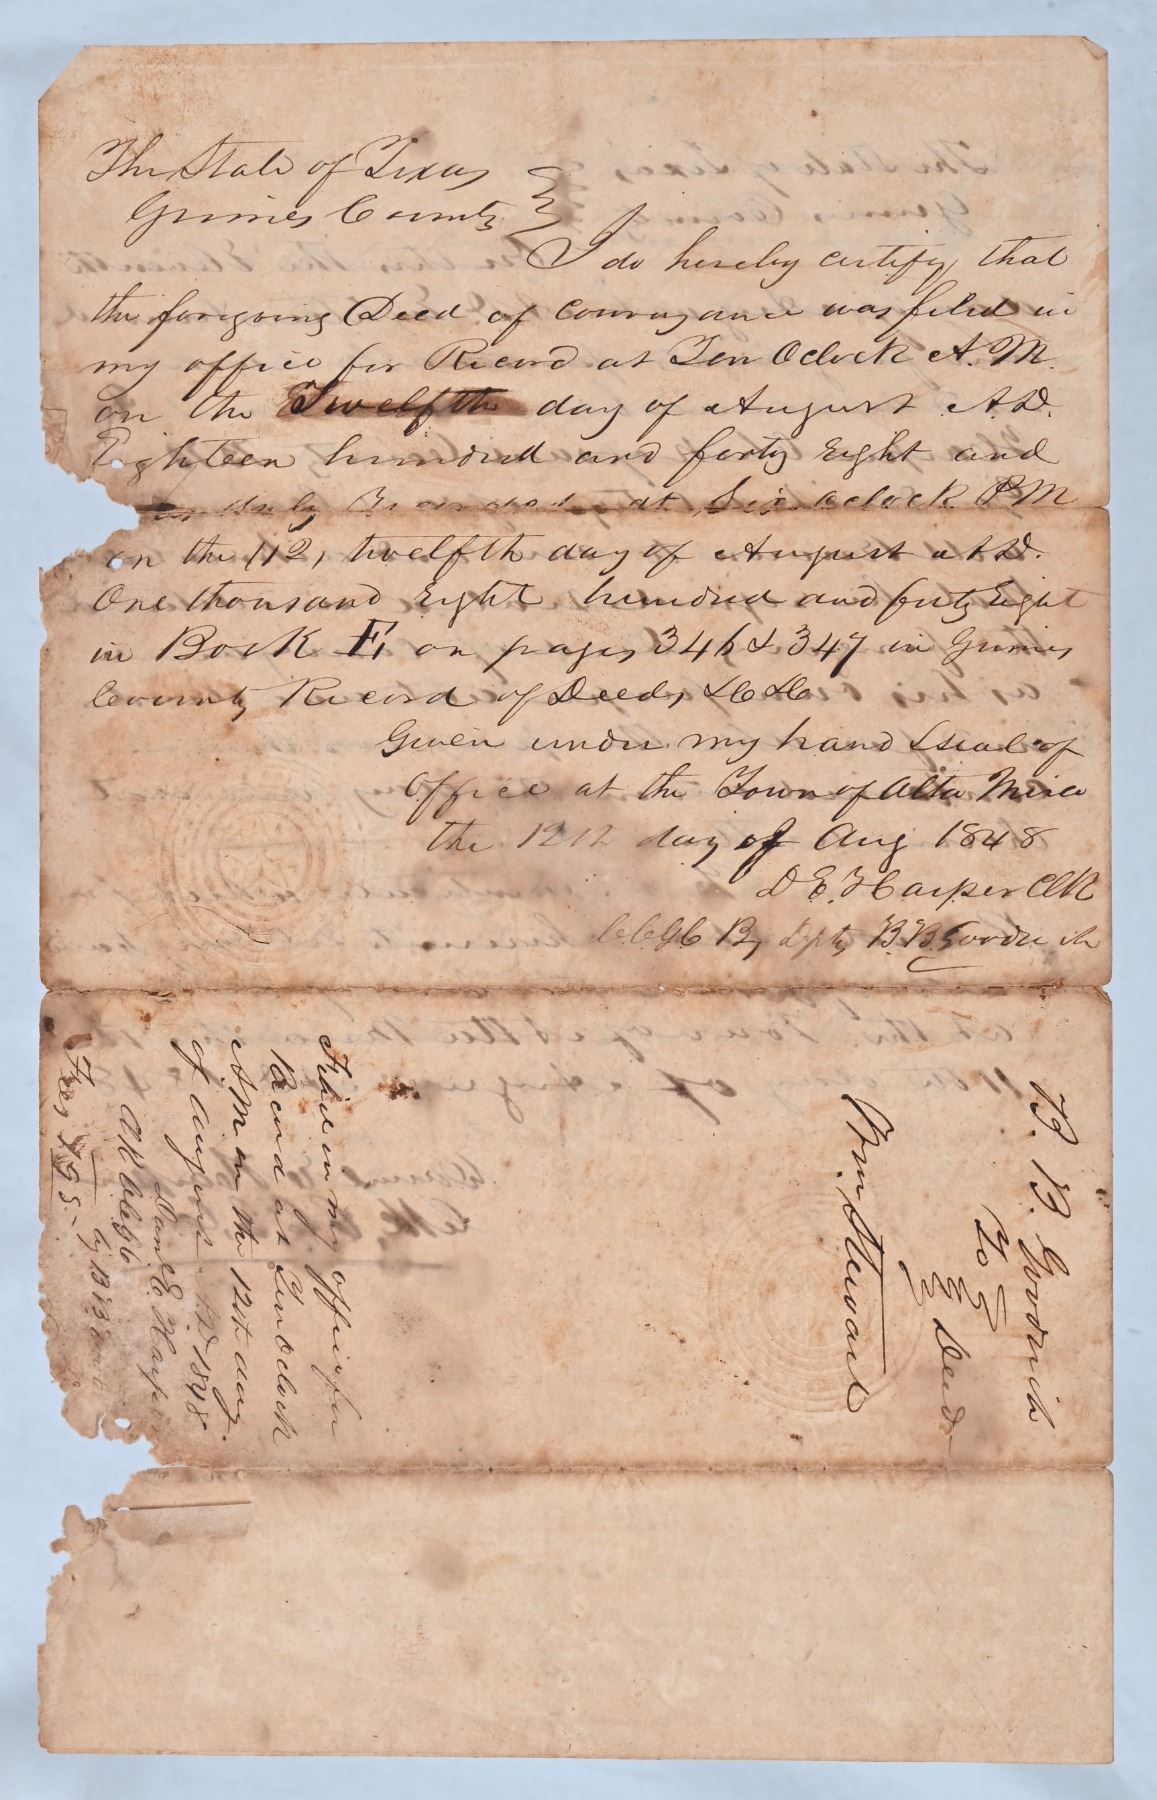 The State of Texas
Grimes County
I do hereby certify that
the foregoing Deed of Conveyance was filed in
my office for Record at Ten Oclock A.M.
on the Twelfth day of August A.D.
Eighteen hundred and forty Eight and
duly Recorded at Six oclock P M
on the (12) twelfth day of August A.D.
One thousand Eight hundred and forty Eight
in Book E, on pages 346 & 347 in Grimes
County Record of Deeds, &C &C
Given under my hand & seal of
office at the Town of Alta Mira
the 12th day of Aug 1848
D E. Harper Clk
C C G C By Dpty B. B. Goodrich
B. B. Goodrich
To
Deed
Wm Steward
Filed in my office for
Record at Ten Oclock
A. M on the 12th day
of August A.D 1848
Danl E. Harper
Clk C C G C
by B B Good
Fees $ 95